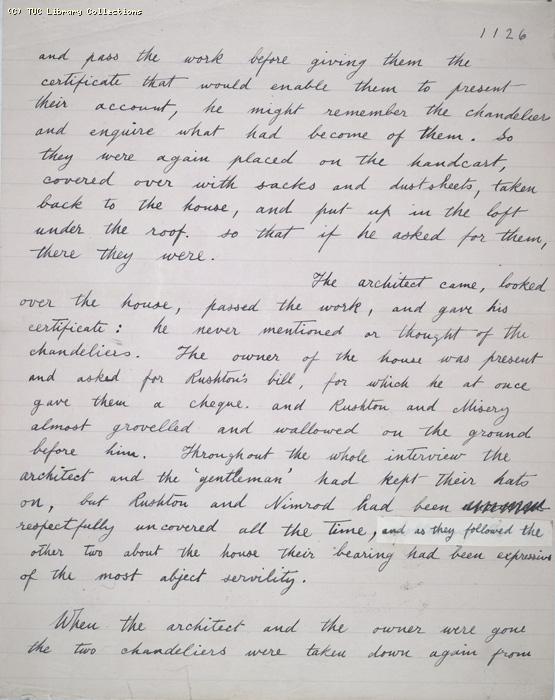 (C) TUC Library Collections
1126
and pass the work before giving them the
certificate that would enable them to present
their account, he might remember the chandeliers
and enquire what had become of them. So
they were again placed on the handcart,
covered over with sacks and dustsheets, taken
back to the house, and put up in the loft
under the roof. so that if he asked for them,
there they were.
The architect came, looked
over the house, passed the work, and gave his
certificate: he never mentioned or thought of the
chandeliers. The owner of the house was present
and asked for Rushton's bill, for which he at once
gave them a cheque. and Rushton and Misery
almost grovelled and wallowed on the ground
before him. Throughout the whole interview the
architect and the 'gentleman' had kept their hats
on, but Rushton and Nimrod had been
respectfully uncovered all the time, and as they followed the
other two about the house their bearing had been expressive
of the most abject servility.
When the architect and the owner were gone
the two chandeliers were taken down again from